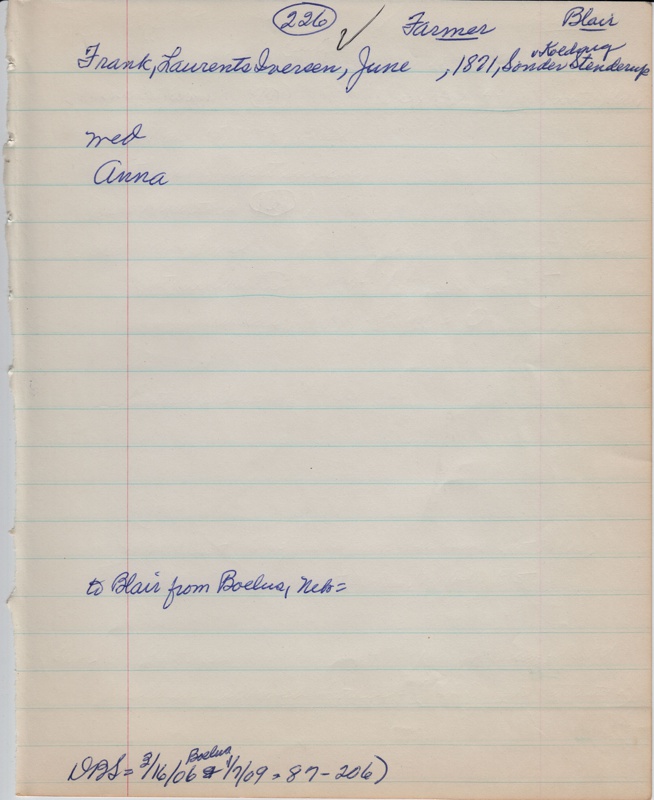 226 Farmer Blair
v Koedning
Frank, Laurents Iversen, June , 1871, Sonder Stenderup
med
Anna
to Blair from Boelus, Neb=
Boelus
DBS= 3/16/06 & 1/7/09 = 87-206)